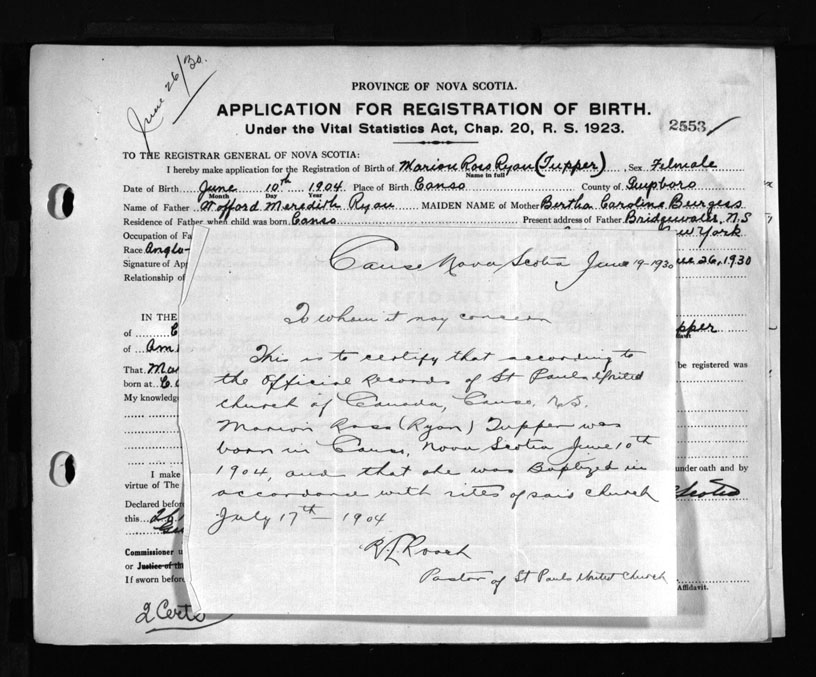 June 26/30.
PROVINCE OF NOVA SCOTIA.
APPLICATION FOR REGISTRATION OF BIRTH.
Under the Vital Statistics Act, Chap. 20, R. S. 1923.
2553
TO THE REGISTRAR GENERAL OF NOVA SCOTIA:
I hereby make application for the Registration of Birth of Marion Ross Ryan (Tupper), Sex Female
Name in full
Date of Birth June 10th 1904 Place of Birth Canso County of Guysboro
Month Day Year
Name of Father Wofford Meredith Ryan MAIDEN NAME of Mother Bertha Caroline Burgess
Residence of Father when child was born Canso Present address of Father Bridgewater, N.S
Occupation of Fa New York
Race Anglo-
Signature of Ap 26, 1930
Relationship of
IN THE
of
of Am
That Mar be registered was
born at
My knowledge
I make under oath and by
virtue of The
Declared before Scotia
this
Commissioner
or Justice of th
If sworn before Affidavit.
2 Certs
Canso Nova Scotia June 19-1930
To whom it may concern
This is to certify that according to
the Official Records of St Pauls United
church of Canada, Canso, N.S.
Marion Ross (Ryan) Tupper was
born in Canso, Nova Scotia June 10th
1904, and that she was Baptized in
accordance with rites of said church
July 17th - 1904
Pastor of St Pauls United Church